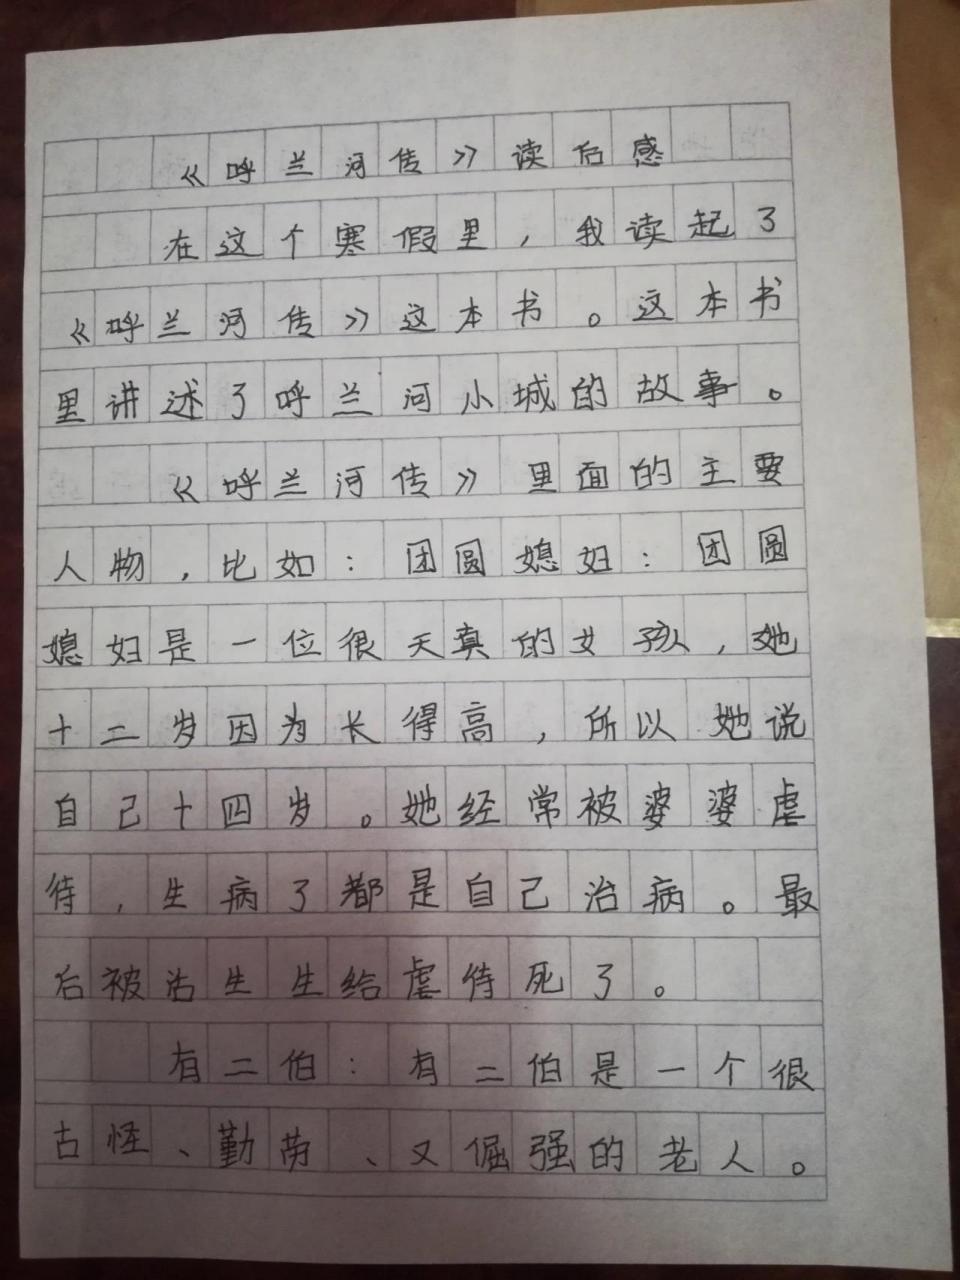 《呼兰河传》读后感
在这个寒假里，我读起了
《呼兰河传》这本书。这本书
里讲述了呼兰河小城的故事。
《呼兰河传》里面的主要
人物，比如：团圆媳妇：团圆
媳妇是一位很天真的女孩，她
十二岁因为长得高，所以她说
自己十四岁。她经常被婆婆虐
待，生病了都是自己治病。最
后被活生生给虐待死了。
有二伯：有二伯是一个很
古怪、勤劳、又倔强的老人。